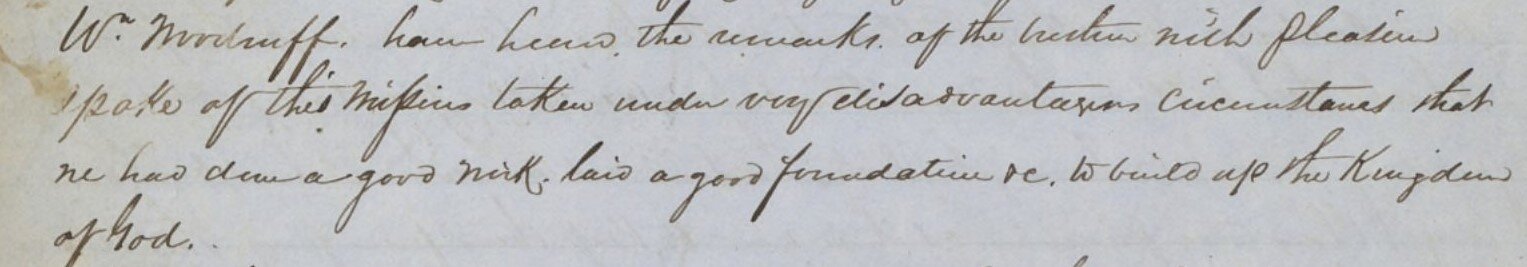 Wm Woodruff. have heard. the remarks. of the brethren with pleasure
spoke of this mission taken under very disadvantageous circumstances that
we had done a good work. laid a good foundation &c. to build up the Kingdom
of God.